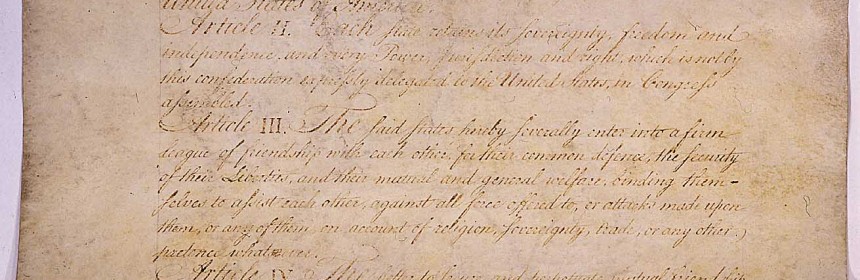 United States of America.
Article II. Each state retains its sovereignty, freedom and
independence, and every Power, Jurisdiction and right, which is not by
this confederation expressly delegated to the United States, in Congress
assembled.
Article III. The said states hereby severally enter into a firm
league of friendship with each other, for their common defence, the security
of their Liberties, and their mutual and general welfare, binding them-
selves to assist each other, against all force offered to, or attacks made upon
them, or any of them, on account of religion, sovereignty, trade, or any other
pretence whatever.
Article IV. The better to secure and perpetuate mutual friendship